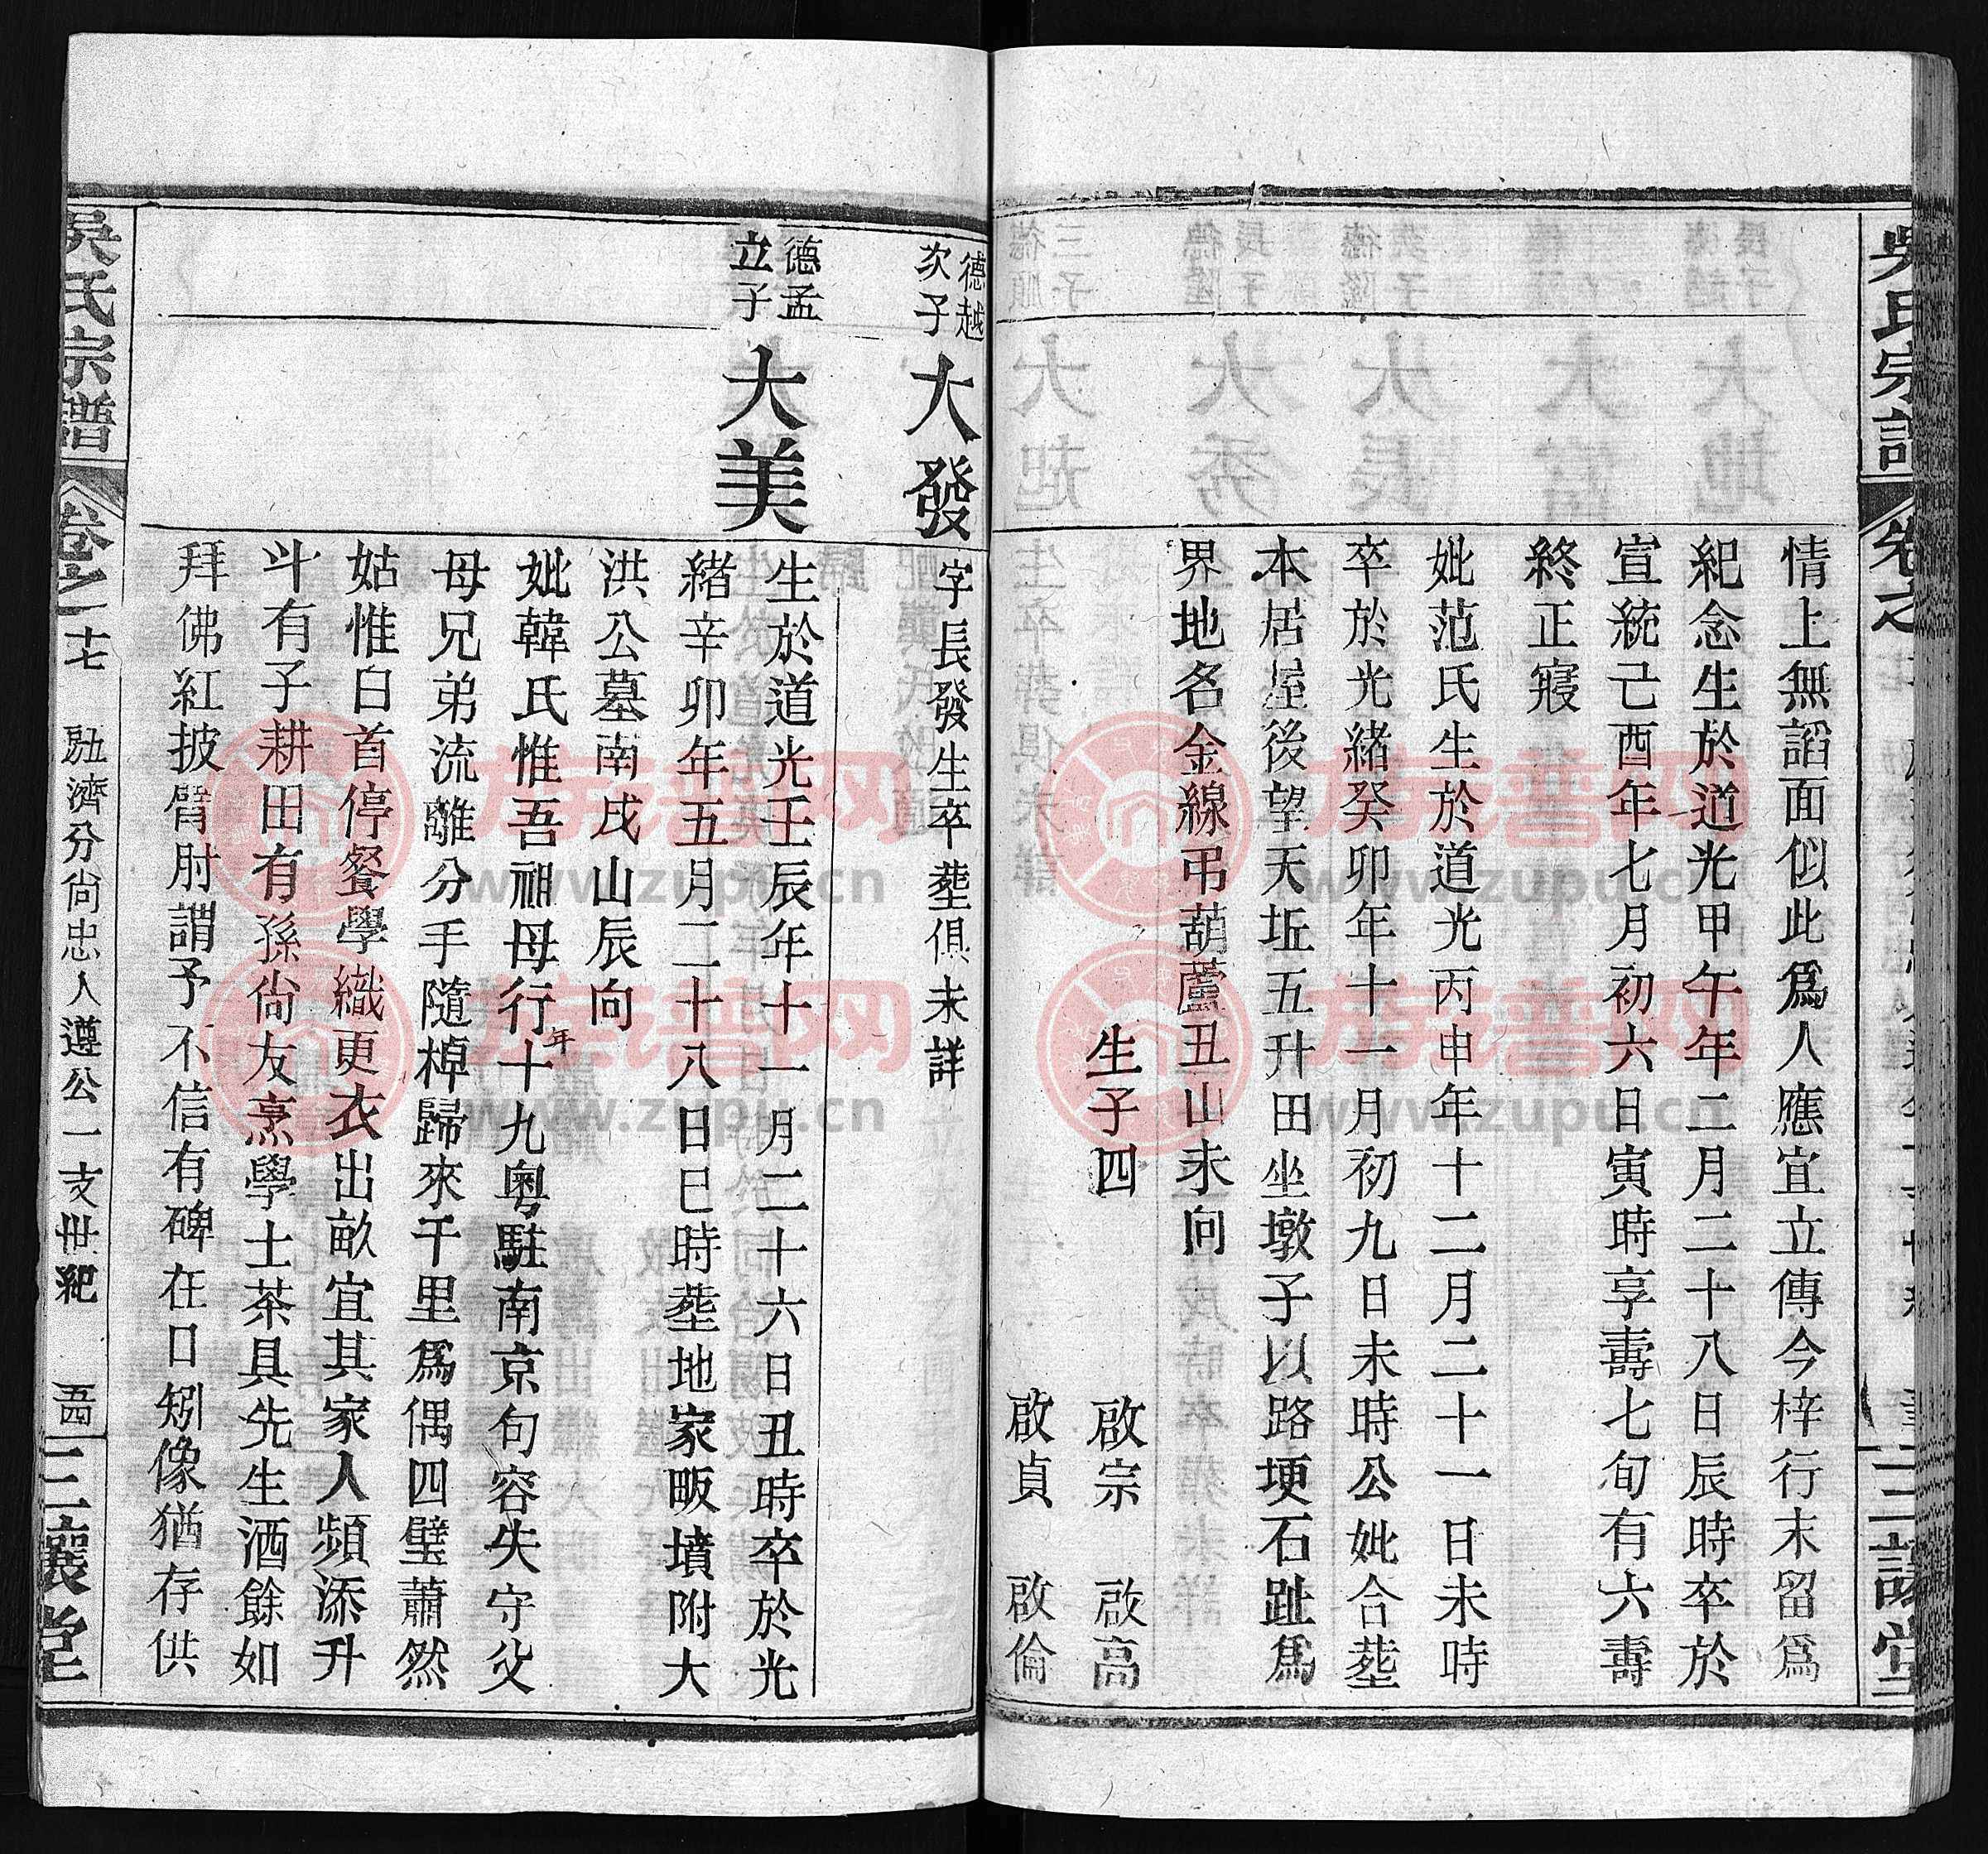 吳氏宗譜
卷之
三讓堂
情上無謟面似此爲人應宜立傳今梓行末留爲
紀念生於道光甲午年二月二十八日辰時卒於
宣統己酉年七月初六日寅時享壽七旬有六壽
終正寢
妣范氏生於道光丙申年十二月二十一日未時
卒於光緒癸卯年十一月初九日未時公妣合塟
本居屋後望天坵五升田坐墩子以路埂石趾爲
界地名金線弔葫蘆丑山未向
生子四 啟宗 啟高
啟貞 啟倫
德越
次子
大發
字長發生卒塟俱未詳
德孟
立子
大美
生於道光壬辰年十一月二十六日丑時卒於光
緒辛卯年五月二十八日巳時塟地家畈墳附大
洪公墓南戌山辰向
妣韓氏惟吾祖母行年十九粵駐南京句容失守父
母兄弟流離分手隨棹歸來千里爲偶四璧蕭然
姑惟白首停餐學織更衣出畝宜其家人頻添升
斗有子耕田有孫尙友烹學士茶具先生酒餘如
拜佛紅披臂肘謂予不信有碑在口矧像猶存供
吳氏宗譜
卷之十七
勵濟分尙忠人遵公一支世紀
五四
三讓堂
族譜网
www.zupu.cn
族譜网
www.zupu.cn
族譜网
www.zupu.cn
族譜网
www.zupu.cn